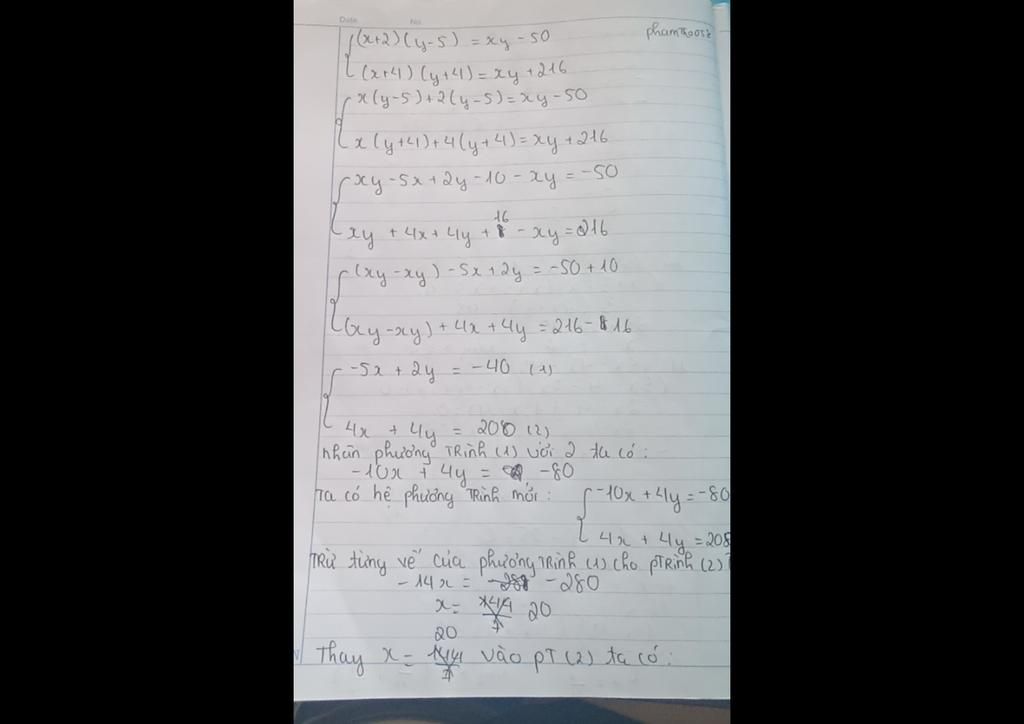 Date No.
phamthoo5z
(x+2)(y-5) = xy - 50
(x+4)(y+4) = xy + 216
x(y-5)+2(y-5)=xy-50
x(y+4)+4(y+4)=xy+216
xy-5x+2y-10-xy=-50
xy+4x+4y+16-xy=216
(xy-xy)-5x+2y=-50+10
(xy-xy)+4x+4y=216-16
-5x+2y=-40 (1)
4x+4y=200 (2)
nhân phương TRình (1) với 2 ta có:
-10x+4y= -80
Ta có hệ phương TRình mới: -10x+4y=-80
4x+4y=208
TRừ từng vế của phương TRình (1) cho pTRình (2)
-14x= -280
x= 20
20
Thay x= vào pT (2) ta có: